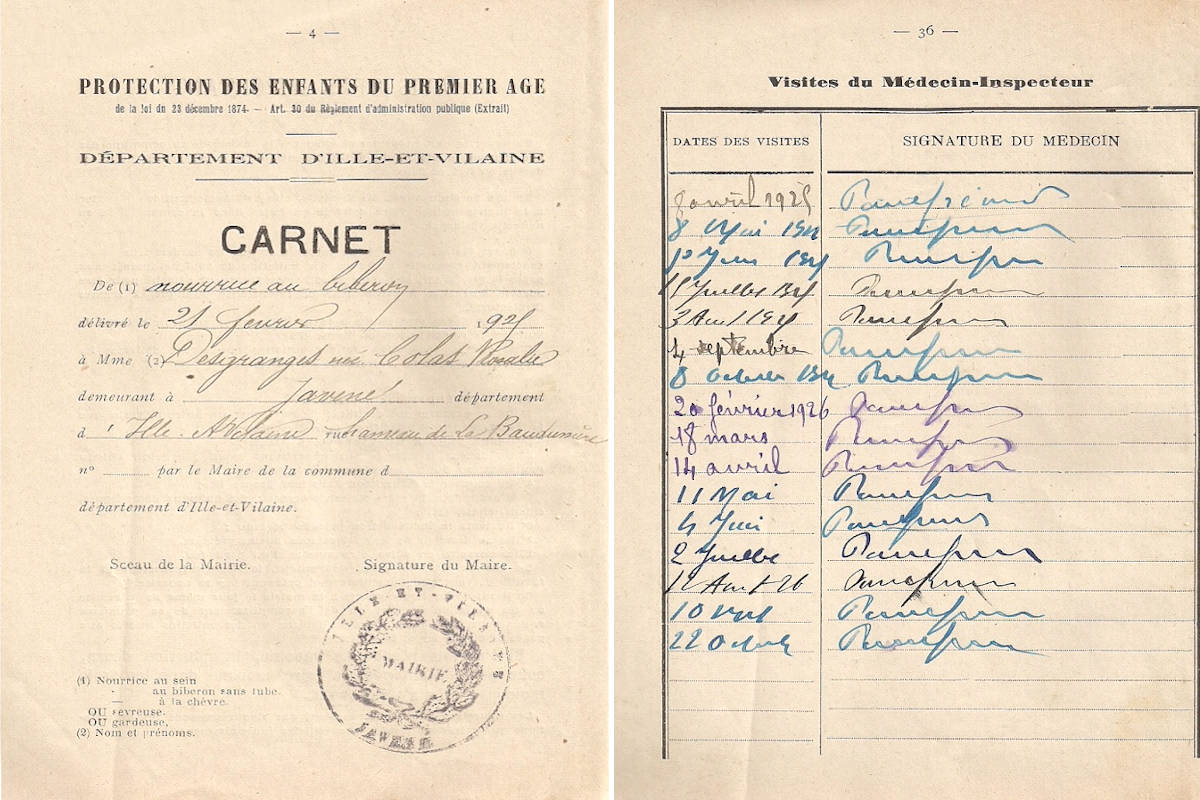 — 4 —
PROTECTION DES ENFANTS DU PREMIER AGE
de la loi du 23 décembre 1874. — Art. 30 du Règlement d'administration publique (Extrait)
DÉPARTEMENT D'ILLE-ET-VILAINE
CARNET
De (1) nourrice au biberon
délivré le 21 février 1925
à Mme (2) Desgranges née Colas Rosalie
demeurant à Javené département
d'Ille-et-Vilaine rue hameau de La
n° par le Maire de la commune d
département d'Ille-et-Vilaine.
Sceau de la Mairie. Signature du Maire.
ILLE-ET-VILAINE
MAIRIE
JAVENÉ
(1) Nourrice au sein
- au biberon sans tube.
— à la chèvre.
OU sevreuse.
OU gardeuse.
(2) Nom et prénoms.
— 36 —
Visites du Médecin-Inspecteur
DATES DES VISITES SIGNATURE DU MÉDECIN
8 avril 1925
8 Mai 1925
10 Juin 1925
15 Juillet 1925
3 Aout 1925
4 septembre
8 Octobre 1925
20 février 1926
18 mars
14 avril
11 Mai
4 Juin
2 Juillet
12 Aout 26
10
22 Octobre